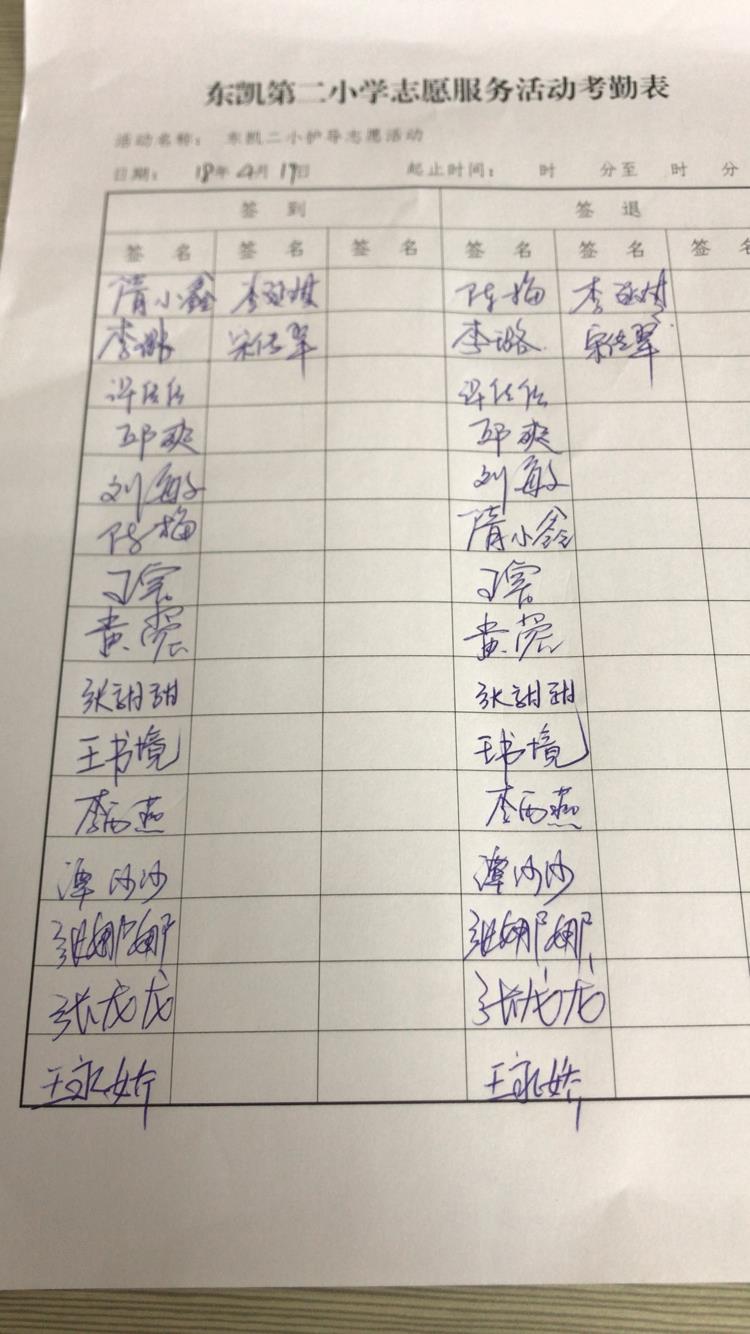 东凯第二小学志愿服务活动考勤表
活动名称： 东凯二小护导志愿活动
日期： 18年4月19日 起止时间： 时 分至 时 分
签 到 签 退
签 名 签 名 签 名 签 名 签 名 签 名
隋小鑫 李 陈梅 李
李璐 宋佳翠 李璐 宋佳翠
许佳佳 许佳佳
邱爽 邱爽
刘敏 刘敏
陈梅 隋小鑫
丁宁 丁宁
黄 黄
张甜甜 张甜甜
王书境 王书境
李丙燕 李丙燕
潭沙沙 潭沙沙
张娜娜 张娜娜
张龙龙 张龙龙
王永娇 王永娇